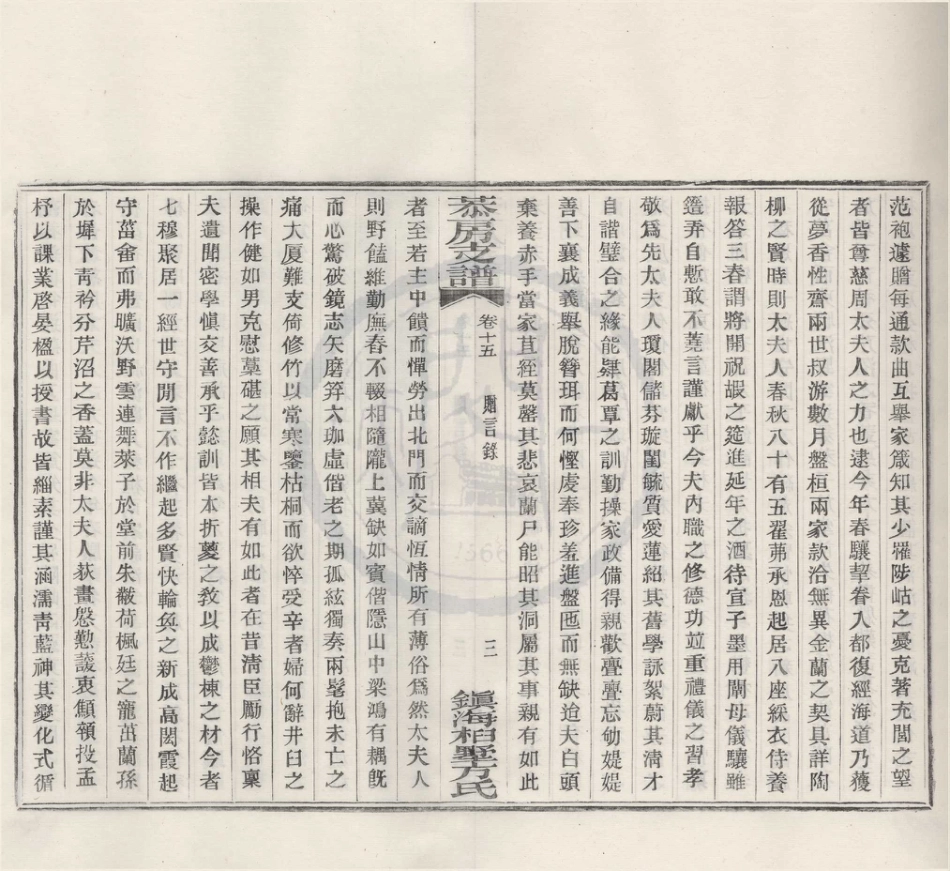 范袍遽贈每通款曲互舉家箴知其少罹陟岵之憂克著充閭之望
者皆尊慈周太夫人之力也逮今年春驤挈眷入都復經海道乃獲
從夢香性齋兩世叔游數月盤桓兩家款洽無異金蘭之契具詳陶
柳之賢時則太夫人春秋八十有五翟茀承恩起居八座綵衣侍養
報答三春謂將開祝嘏之筵進延年之酒待宣子墨用闡母儀驤雖
簉弄自慙敢不蕘言謹獻乎今夫內職之修德功竝重禮儀之習孝
敬爲先太夫人瓊閣儲芬璇閨毓質愛蓮紹其舊學詠絮蔚其淸才
自諧璧合之緣能肄葛覃之訓勤操家政備得親歡亹亹忘劬媞媞
善下襄成義舉脫簪珥而何慳虔奉珍羞進盤匜而無缺迨夫白頭
棄養赤手當家苴絰莫罄其悲哀蘭尸能昭其洞屬其事親有如此
恭房支譜 卷十五 贈言錄 三 鎭海柏墅方氏
者至若主中饋而憚勞出北門而交謫恆情所有薄俗爲然太夫人
則野饁維勤廡舂不輟相隨隴上冀缺如賓偕隱山中梁鴻有耦旣
而心驚破鏡志矢磨笄六珈虛偕老之期孤絃獨奏兩髦抱未亡之
痛大厦難支倚修竹以常寒鑒枯桐而欲悴受辛者婦何辭井臼之
操作健如男克慰藁碪之願其相夫有如此者在昔淸臣勵行恪稟
夫遺聞密學愼交善承乎懿訓皆本折葼之敎以成鬱棟之材今者
七穆聚居一經世守閒言不作繼起多賢快輪奐之新成高閎霞起
守菑畬而弗曠沃野雲連舞萊子於堂前朱黻荷楓廷之寵茁蘭孫
於墀下靑衿分芹沼之香蓋莫非太夫人荻畫慇懃護衷顦顇投孟
杼以課業啓晏楹以授書故皆緇素謹其涵濡靑藍神其變化式循